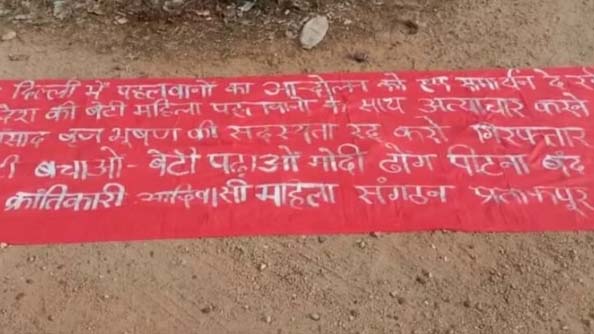 दिल्ली में पहलवानों का आन्दोलन को हम समर्थन दे रहे
देश की बेटी महिला पहलवानों के साथ अत्याचार करने
बृज भूषण की सदस्यता रद्द करो गिरफ्तार
बचाओ - बेटी पढ़ाओ मोदी ढोंग पीटना बंद
क्रांतिकारी आदिवासी महिला संगठन प्रतापपुर